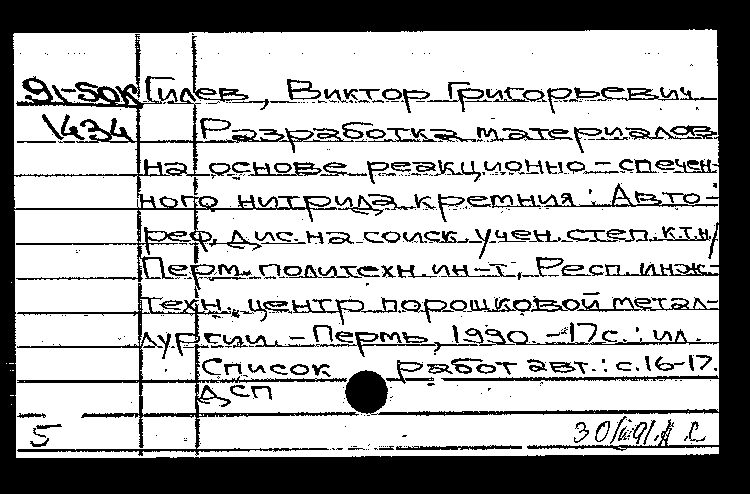 91-50к Гилев, Виктор Григорьевич.
1434 Разработка материалов
на основе реакционно-спечен-
ного нитрида кремния: Авто-
реф. дис. на соиск. учен. степ. к.т.н/
Перм. политехн. ин-т, Респ. инж.-
техн. центр порошковой метал-
лургии. - Пермь, 1990. - 17с.: ил.
Список работ авт.: с.16-17.
ДСП
5